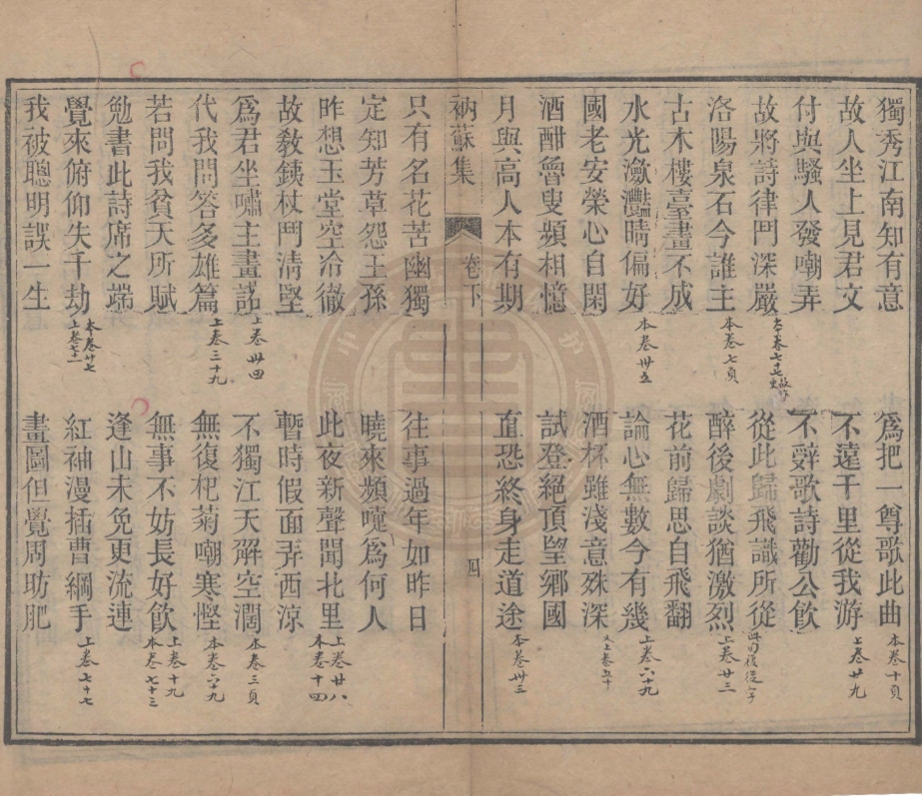 獨秀江南知有意　爲把一尊歌此曲　本卷十頁
故人坐上見君文　不遠千里從我游　上卷廿九
付與騷人發嘲弄　不辭歌詩勸公飲
故將詩律鬥深嚴　從此歸飛識所從
洛陽泉石今誰主　本卷七頁　醉後劇談猶激烈　上卷廿三
古木樓臺畫不成　花前歸思自飛翻
水光瀲灩晴偏好　本卷卅五　論心無數今有幾　上卷六十九
國老安榮心自閑　酒杯雖淺意殊深　又上卷五十
酒酣魯叟頻相憶　試登絕頂望鄉國
月與高人本有期　直恐終身走道途　本卷卅三
衲蘇集　卷下　四
只有名花苦幽獨　往事過年如昨日
定知芳草怨王孫　曉來頻嚏爲何人
昨想玉堂空冷徹　此夜新聲聞北里　上卷廿八　本卷十四
故教鐵杖鬥清堅　暫時假面弄西涼
爲君坐嘯主畫諾　上卷卅四　不獨江天解空濶　本卷三頁
代我問答多雄篇　上卷三十九　無復杞菊嘲寒慳　本卷六十九
若問我貧天所賦　無事不妨長好飲　上卷十九　本卷七十三
勉書此詩席之端　逢山未免更流連
覺來俯仰失千劫　本卷廿七　上卷七十一　紅袖漫插曹綱手　上卷七十七
我被聰明誤一生　畫圖但覺周昉肥